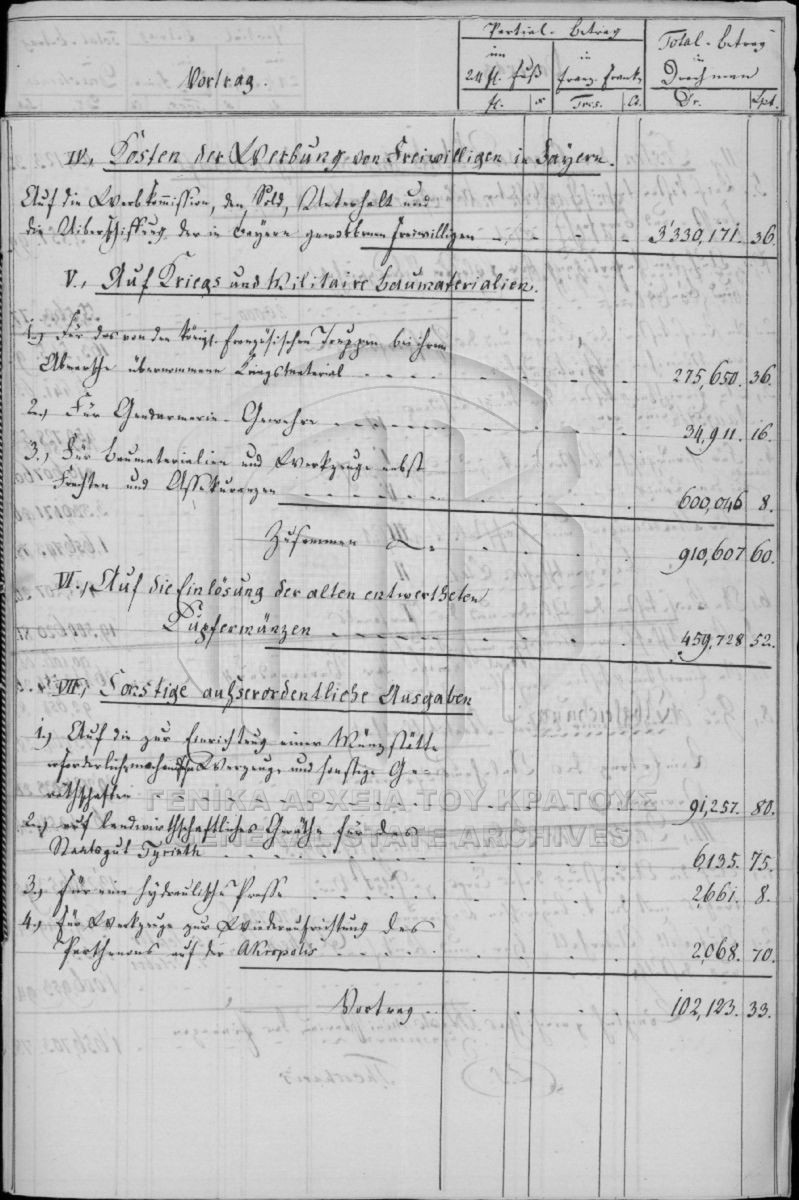 Partial-Betrag
Total-Betrag
im
in
in
24 fl. Fuß
Franz. Frank
Drachmen
Vortrag.
fl. x Frcs. Ct. Dr. Lpt.
IV., Kosten der Werbung von Freiwilligen in Bayern.
Auf die Werbkommission, den Sold, Unterhalt und
die Uiberschiffung der in Bayern geworbenen Freiwilligen 3'330,171. 36.
V., Auf Kriegs und Militaire Baumaterialien.
1.) Für das von den königl. französischen Truppen bei ihrem
Abmarsche übernommene Kriegsmaterial 275,650. 36.
2.) Für Gendarmerie-Gewehre 34,911. 16.
3.) Für Baumaterialien und Werkzeuge nebst
Frachten und Assekuranzen 600,046 8.
Zusammen 910,607 60.
VI., Auf die Einlösung der alten entwertheten
Kupfermünzen 459,728 52.
VII., Sonstige außerordentliche Ausgaben
1.) Auf die zur Einrichtung einer Münzstätte
Werkzeuge und sonstige Ge-
räthschaften 91,257. 80.
ΓΕΝΙΚΑ ΑΡΧΕΙΑ ΤΟΥ ΚΡΑΤΟΥΣ
2.) auf landwirthschaftliches Geräthe für das
GENERAL STATE ARCHIVES
Staatsgut Tyrinth 6,135. 75.
3.) für eine hydraulische Presse 2,661. 8.
4.) für Werkzeuge zur Wiederaufrichtung des
Parthenons auf der Akropolis 2,068. 70.
Vortrag 102,123. 33.